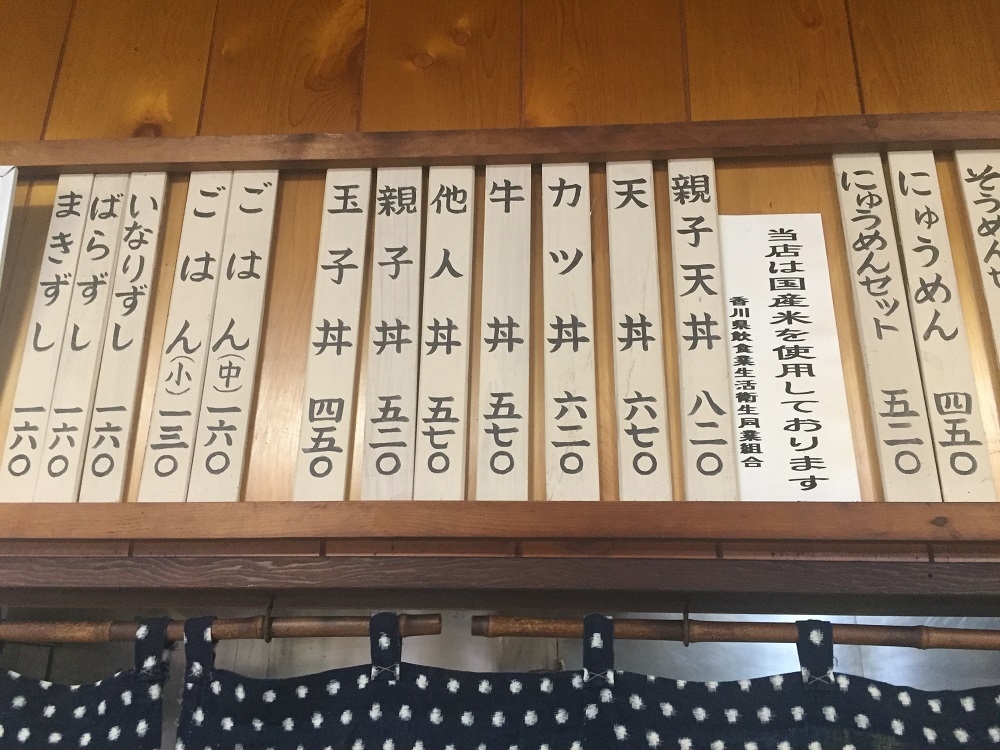 そうめんセ
にゅうめん 四五〇
にゅうめんセット 五二〇
当店は国産米を使用しております
香川県飲食業生活衛生同業組合
親子天丼 八二〇
天丼 六七〇
カツ丼 六二〇
牛丼 五七〇
他人丼 五七〇
親子丼 五二〇
玉子丼 四五〇
ごはん(中) 一六〇
ごはん(小) 一三〇
いなりずし 一六〇
ばらずし 一六〇
まきずし 一六〇